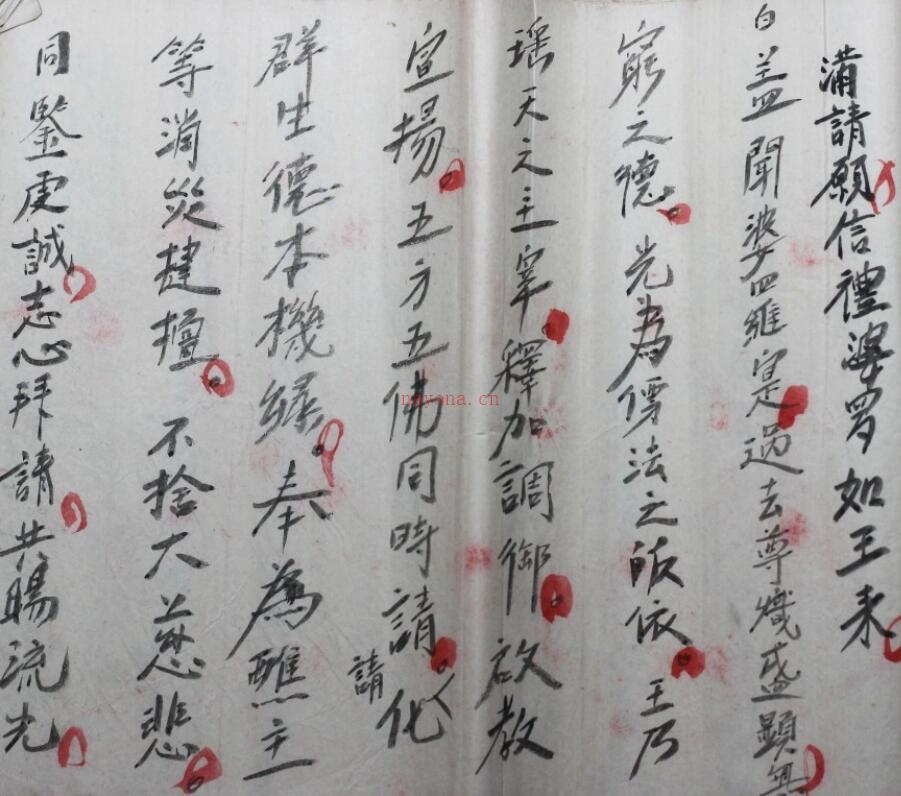 滿請願信禮婆罗如王来
白盖聞婆四維寔是過去尊熾盛顕無
窮之德光為傍法之皈依王乃
瑶天之主宰釋加調御啟教
宣揚五方五佛同時請化
請
群生德本機緣奉為醮主
等消災建壇不捨大慈悲
同鑒虔誠志心拜請共賜流光
nayona.cn